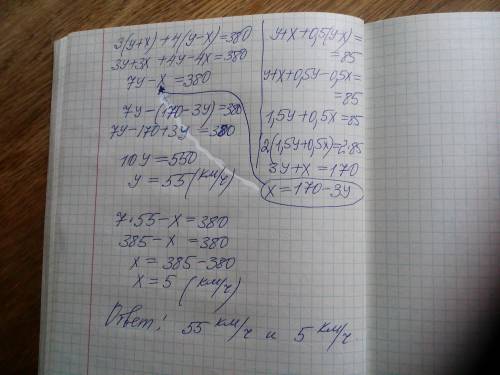 3(y+x)+4(y-x)=380
3y+3x+4y-4x=380
7y-x=380
7y-(170-3y)=380
7y-170+3y=380
10y=550
y=55 (км/ч)
7·55-x=380
385-x=380
x=385-380
x=5 (км/ч)
y+x+0,5(y-x)=
=85
y+x+0,5y-0,5x=
=85
1,5y+0,5x=85
2(1,5y+0,5x)=2·85
3y+x=170
x=170-3y
Ответ: 55 км/ч и 5 км/ч.